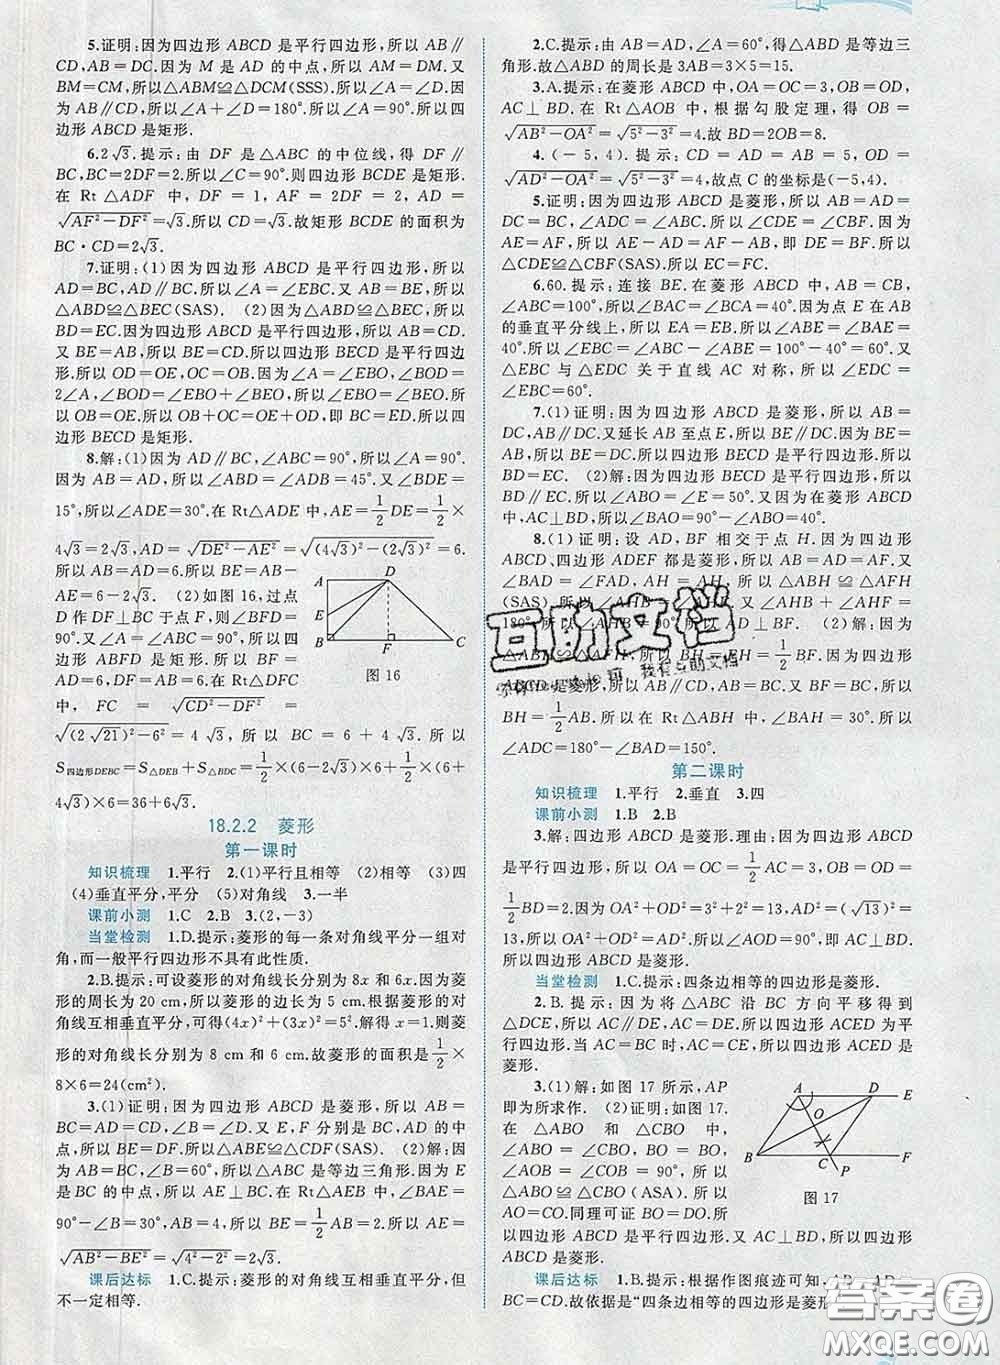 5.证明:因为四边形 ABCD 是平行四边形,所以 AB∥
CD,AB=CD.因为 M 是 AD 的中点,所以 AM=DM.又
BM=CM,所以△ABM≌△DCM(SSS).所以∠A=∠D.因
为 AB∥CD,所以∠A+∠D=180°.所以∠A=90°.所以四
边形 ABCD 是矩形.
6.2√3.提示:由 DF 是△ABC 的中位线,得 DF∥
BC,BC=2DF=2.所以∠C=90°.则四边形 BCDE 是矩形.
在 Rt△ADF 中,DF=1,AF=2DF=2,AD=
√(AF²-DF²)=√3.所以 CD=√3.故矩形 BCDE 的面积为
BC·CD=2√3.
7.证明:(1)因为四边形 ABCD 是平行四边形,所以
AD=BC,AD∥BC.所以∠A=∠EBC.又 AB=BE,所以
△ABD≌△BEC(SAS). (2)因为△ABD≌△BEC,所以
BD=EC.因为四边形 ABCD 是平行四边形,所以 AB=CD.
又 BE=AB,所以 BE=CD.所以四边形 BECD 是平行四边
形.所以 OD=OE,OC=OB.因为∠A=∠EBC,∠BOD=
2∠A,∠BOD=∠EBO+∠BEO,所以∠EBO=∠BEO.所
以 OB=OE.所以 OB+OC=OE+OD,即 BC=ED.所以四
边形 BECD 是矩形.
8.解:(1)因为 AD∥BC,∠ABC=90°,所以∠A=90°.
因为 AB=AD,所以∠ABD=∠ADB=45°.又∠BDE=
15°,所以∠ADE=30°.在 Rt△ADE 中,AE=1/2 DE=1/2×
4√3=2√3,AD=√(DE²-AE²)=√((4√3)²-(2√3)²)=6.
所以 AB=AD=6.所以 BE=AB-
AE=6-2√3. (2)如图 16,过点
D 作 DF⊥BC 于点 F,则∠BFD=
90°.又∠A=∠ABC=90°,所以四边
形 ABFD 是矩形.所以 BF=AD=
6,DF=AB=6.在 Rt△DFC
中, FC=√(CD²-DF²)=
√((2√21)²-6²)=4√3,所以 BC=6+4√3.所以
S四边形DEBC=S△DEB+S△BDC=1/2×(6-2√3)×6+1/2×(6+
4√3)×6=36+6√3.
A
D
E
B
F
C
图 16
18.2.2 菱形
第一课时
知识梳理 1.平行 2.(1)平行且相等 (2)相等 (3)四
(4)垂直平分,平分 (5)对角线 3.一半
课前小测 1.C 2.B 3.(2,-3)
当堂检测 1.D.提示:菱形的每一条对角线平分一组对
角,而一般平行四边形不具有此性质.
2.B.提示:可设菱形的对角线长分别为 8x 和 6x.因为菱
形的周长为 20 cm,所以菱形的边长为 5 cm.根据菱形的对
角线互相垂直平分,可得(4x)²+(3x)²=5².解得 x=1.则菱
形的对角线长分别为 8 cm 和 6 cm.故菱形的面积是 1/2×
8×6=24(cm²).
3.(1)证明:因为四边形 ABCD 是菱形,所以 AB=BC=
CD=AD,∠B=∠D.又 E,F 分别是 BC,CD 的中
点,所以 BE=DF.所以△ABE≌△CDF(SAS). (2)解:因
为 AB=BC,∠B=60°,所以△ABC 是等边三角形.因为 E
是 BC 的中点,所以 AE⊥BC.在 Rt△AEB 中,∠BAE=
90°-∠B=30°,所以 BE=1/2 AB=2.所以 AE=
√(AB²-BE²)=√(4²-2²)=2√3.
课后达标 1.C.提示:菱形的对角线互相垂直平分,但
不一定相等.
2.C.提示:由 AB=AD,∠A=60°,得△ABD 是等边三
角形.故△ABD 的周长是 3AB=3×5=15.
3.A.提示:在菱形 ABCD 中,OA=OC=3,OB=OD,
AC⊥BD.在 Rt△AOB 中,根据勾股定理,得 OB=
√(AB²-OA²)=√(5²-3²)=4.故 BD=2OB=8.
4.(-5,4).提示:CD=AD=AB=5,OD=
√(AD²-OA²)=√(5²-3²)=4,故点 C 的坐标是(-5,4).
5.证明:因为四边形 ABCD 是菱形,所以 AB=AD=
DC=BC,∠ADC=∠ABC.所以∠CDE=∠CBF.因为
AE=AF,所以 AE-AD=AF-AB,即 DE=BF.所以
△CDE≌△CBF(SAS).所以 EC=FC.
6.60.提示:连接 BE.在菱形 ABCD 中,AB=CB,
∠ABC=100°,所以∠BAC=∠BCA=40°.因为点 E 在 AB
的垂直平分线上,所以 EA=EB.所以∠ABE=∠BAE=
40°.所以∠EBC=∠ABC-∠ABE=100°-40°=60°.又
△EBC 与△EDC 关于直线 AC 对称,所以∠EDC=
∠EBC=60°.
7.(1)证明:因为四边形 ABCD 是菱形,所以 AB=
DC,AB∥DC.又延长 AB 至点 E,使 BE=AB,所以 BE=
DC,BE∥DC.所以四边形 BECD 是平行四边形.所以
BD=EC. (2)解:因为四边形 BECD 是平行四边形,所以
BD∥EC.所以∠ABO=∠E=50°.又因为在菱形 ABCD
中,AC⊥BD,所以∠BAO=90°-∠ABO=40°.
8.(1)证明:设 AD,BF 相交于点 H.因为四边形
ABCD、四边形 ADEF 都是菱形,所以 AB=AD=AF.又
∠BAD=∠FAD,AH=AH,所以△ABH≌△AFH
(SAS).所以∠AHB=∠AHF.又∠AHB+∠AHF=
180°,所以∠AHB=90°.所以 AD⊥BF. (2)解:因为
BH=FH=1/2 BF,四边形
ABCD 是菱形
BH=1/2 AB.所以在 Rt△ABH 中,∠BAH=30°.所以
∠ADC=180°-∠BAD=150°.
第二课时
知识梳理 1.平行 2.垂直 3.四
课前小测 1.B 2.B
3.解:四边形 ABCD 是菱形.理由:因为四边形 ABCD
是平行四边形,所以 OA=OC=1/2 AC=3,OB=OD=
1/2 BD=2.因为 OA²+OD²=3²+2²=13,AD²=(√13)²=
13,所以 OA²+OD²=AD².所以∠AOD=90°,即 AC⊥BD.
所以四边形 ABCD 是菱形.
当堂检测 1.C.提示:四条边相等的四边形是菱形.
2.B.提示:因为将△ABC 沿 BC 方向平移得到
△DCE,所以 AC∥DE,AC=DE.所以四边形 ACED 为平
行四边形.当 BC=AC 时,AC=CE,所以平行四边形 ACED 是
菱形.
3.(1)解:如图 17 所示,AP
即为所求作. (2)证明:如图 17.
在△ABO 和△CBO 中,
∠ABO=∠CBO,BO=BO,
∠AOB=∠COB=90°,所以
△ABO≌△CBO(ASA).所以
AO=CO.同理可证 BO=DO.所
以四边形 ABCD 是平行四边形.又 AC⊥BD,所以四边形
ABCD 是菱形.
A
D
E
O
B
C
F
P
图 17
课后达标 1.B.提示:根据作图痕迹可知,AB=AD=
BC=CD.故依据是“四条边相等的四边形是菱形
互助文档
答案圈
MXQE.COM